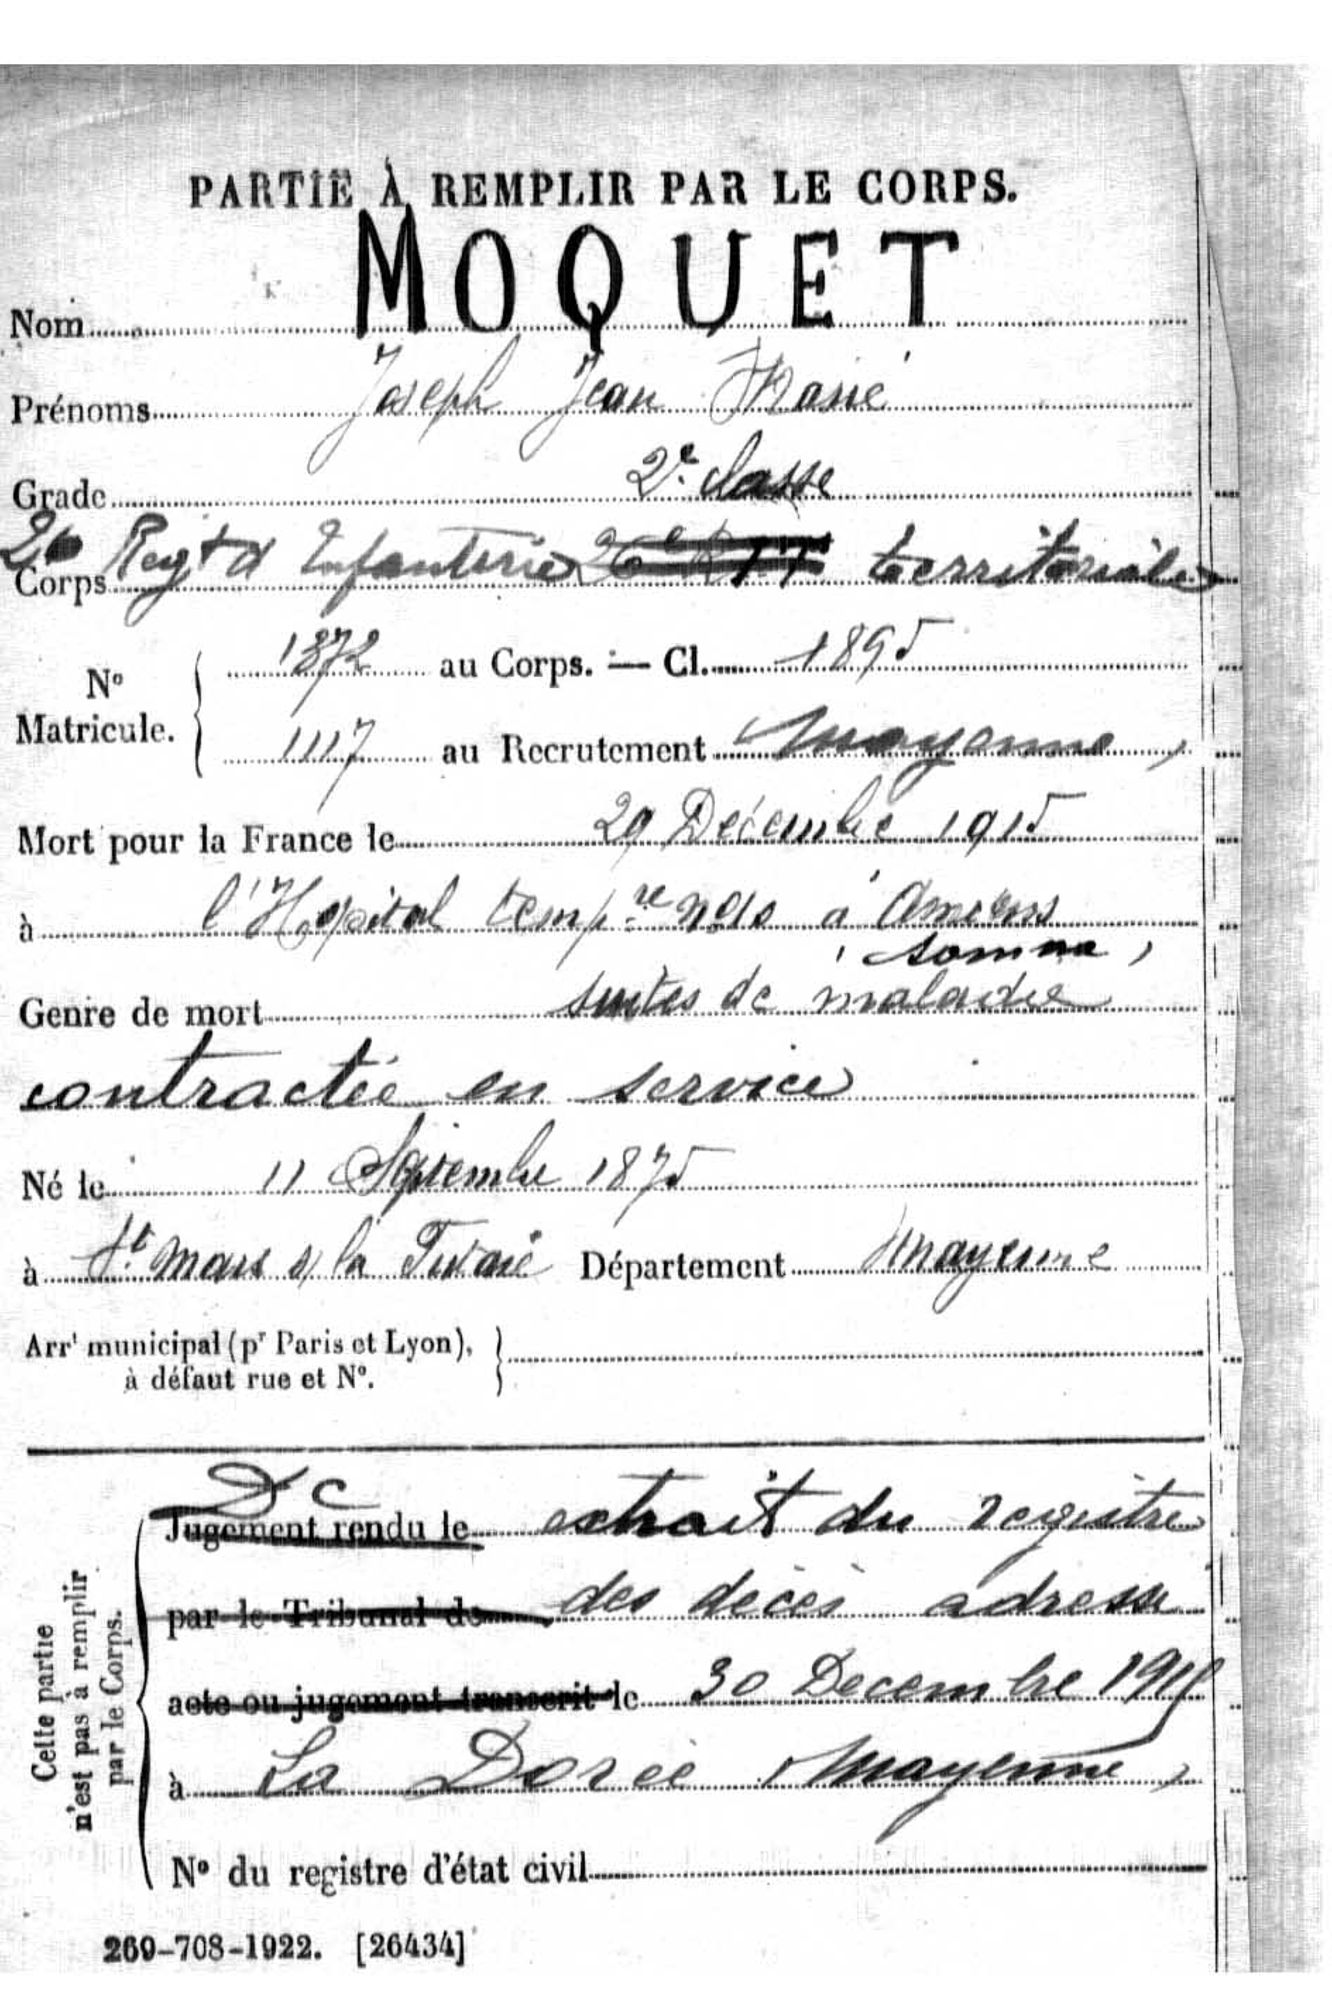 PARTIE À REMPLIR PAR LE CORPS.
Nom MOQUET
Prénoms Joseph Jean Marie
Grade 2e classe
Corps 26 Regt d Infanterie 26e RIT territoriale
No Matricule. 1372 au Corps. — Cl. 1895
1117 au Recrutement Mayenne
Mort pour la France le 29 Décembre 1915
à l'Hopital tempre no 10 à Amiens
(Somme)
Genre de mort suites de maladie
contractée en service
Né le 11 Septembre 1875
à St Mars s/ la Futaie Département Mayenne
Arrt municipal (pr Paris et Lyon),
à défaut rue et No.
Cette partie
n'est pas à remplir
par le Corps.
Dc
Jugement rendu le extrait du registre
par le Tribunal de des décès adressé
acte ou jugement transcrit le 30 Décembre 1915
à La Dorée (Mayenne)
No du registre d'état civil
269-708-1922. [26434]